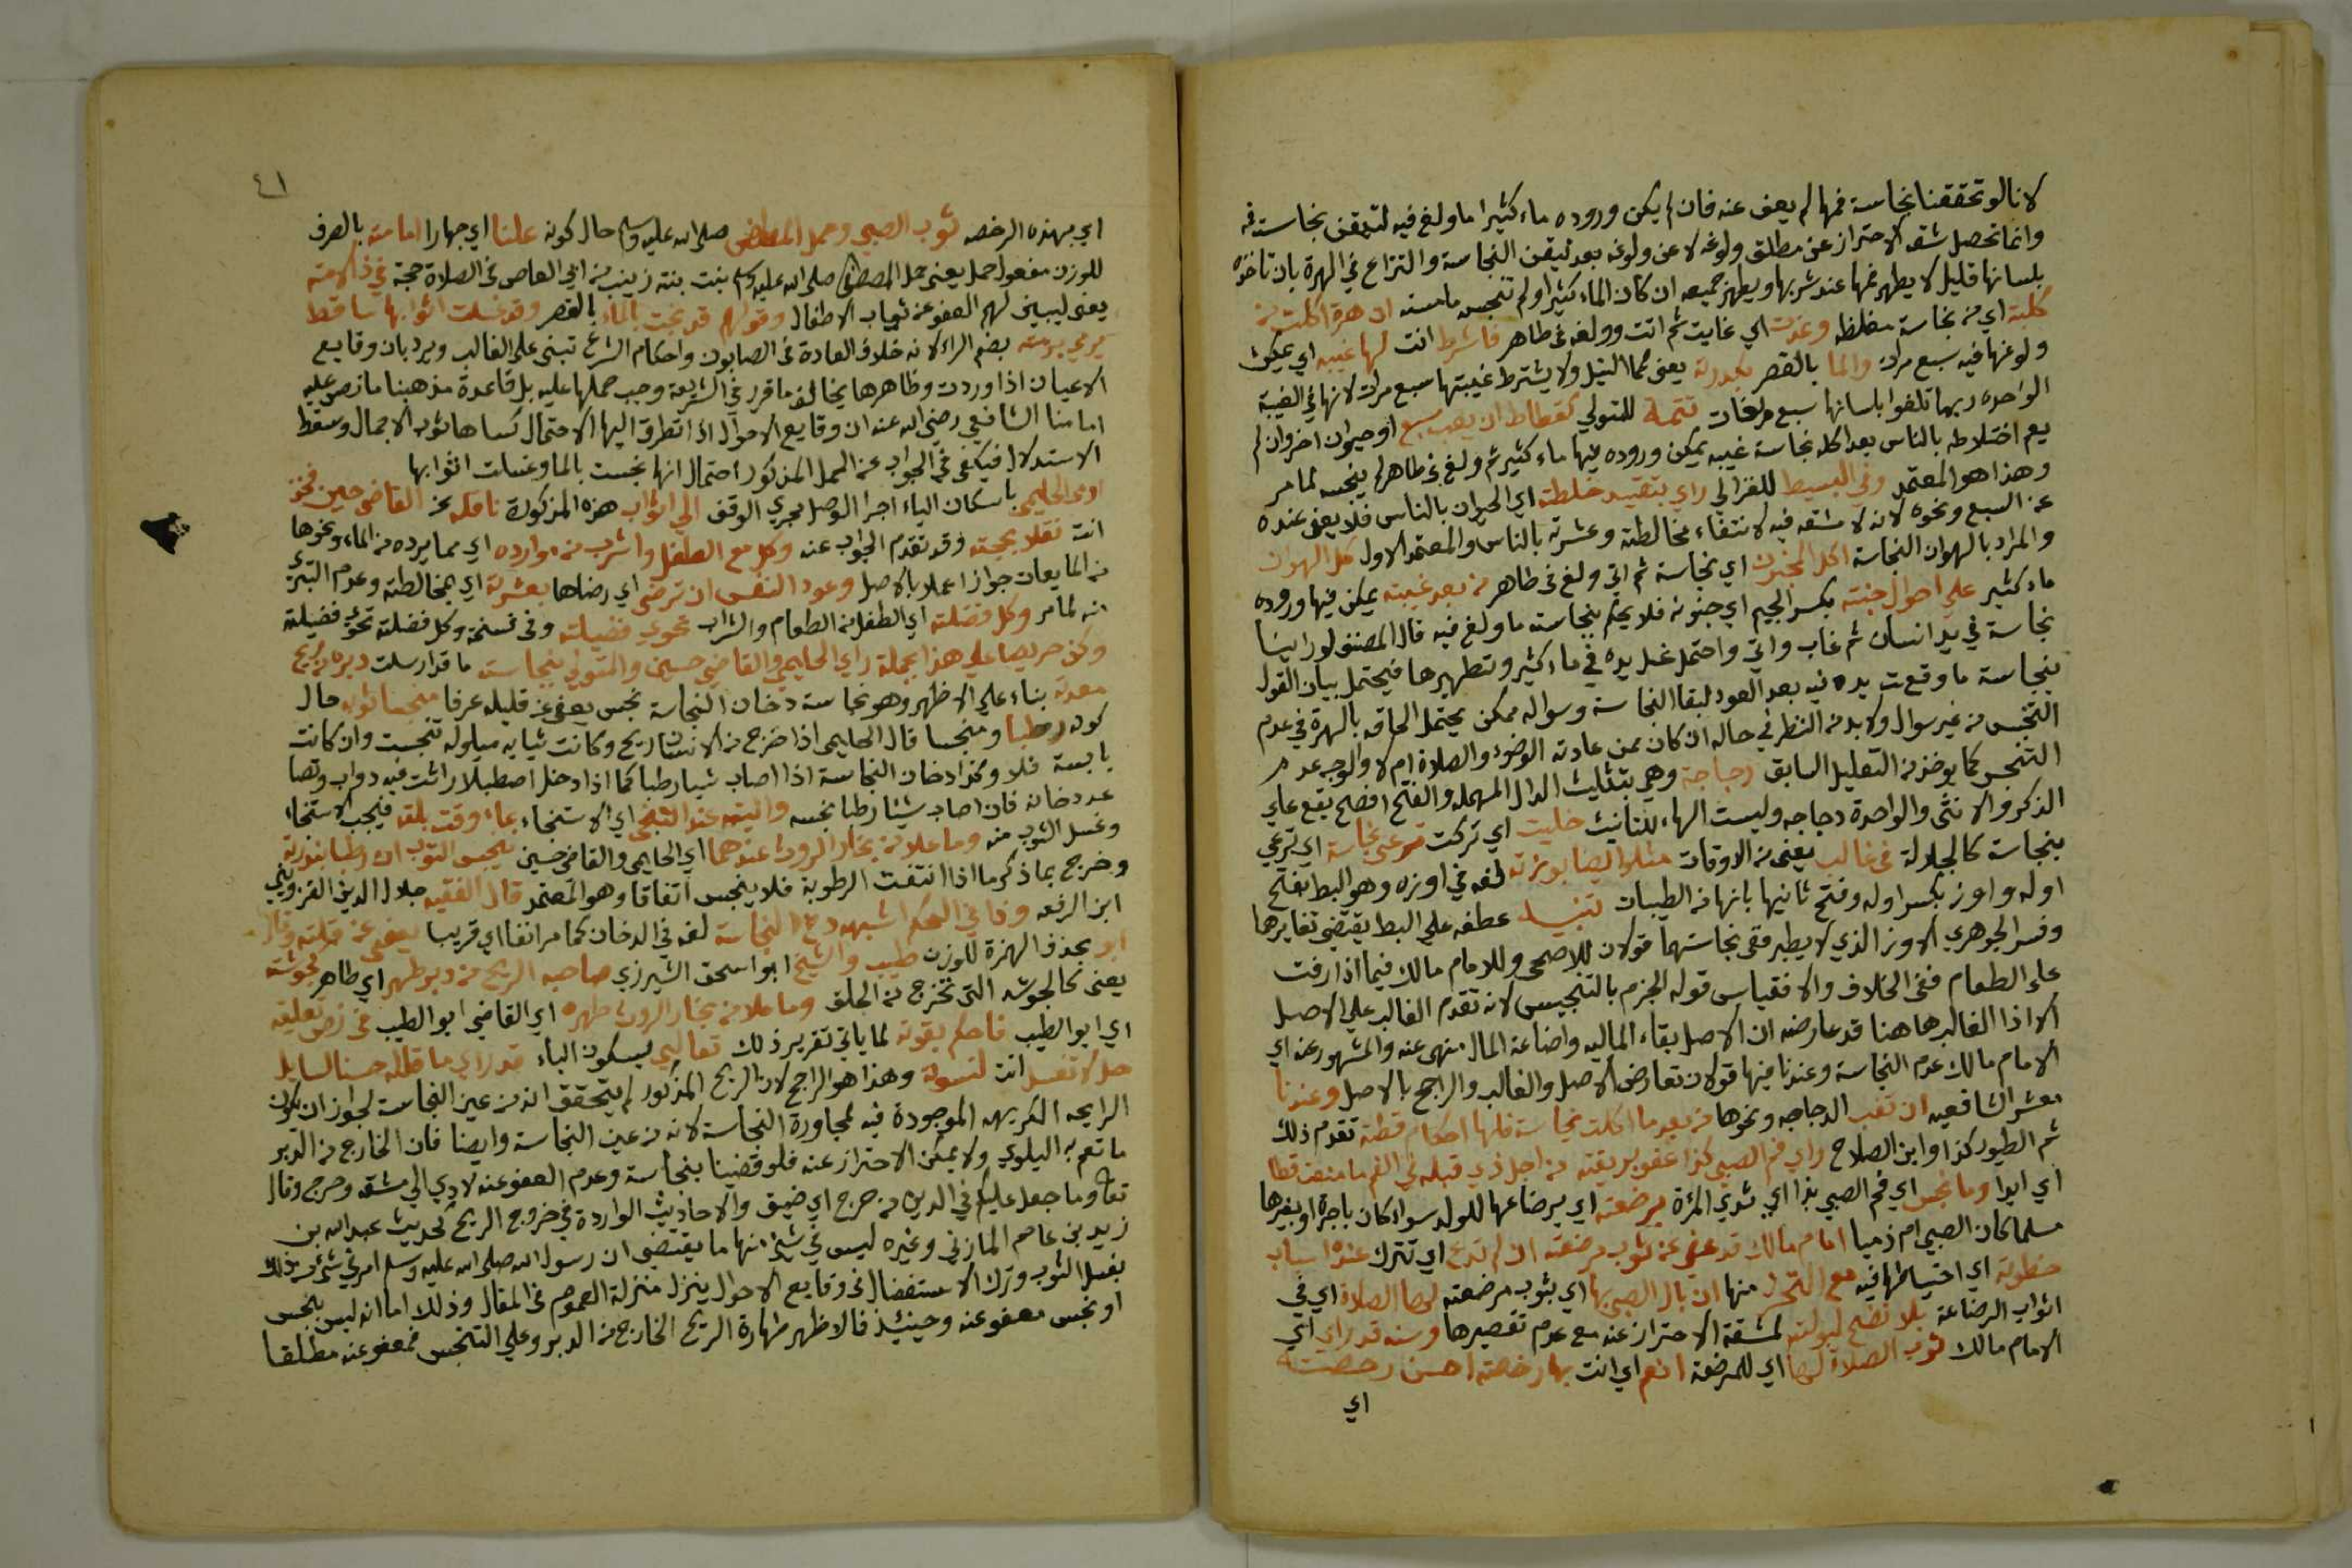 لانا لو تحققنا نجاسة فمها لم يعف عنه فان لم يكن وروده ماء كثيرا ما ولغ فيه لتيقن نجاسة فم
وانما تحصل شقه الاحتراز عن مطلق ولوغه لا عن ولوغه بعد تيقن النجاسة والنزاع في الهرة بان تاخذه
بلسانها قليل لا يطهر فمها عند شربها ويطهر جميعه ان كان الماء كثيرا ولم تنجس ما مسته ان هرة اكلت من
كلبة اي من نجاسة مغلظه وغدت اي غابت ثم اتت وولغت في طاهر فاشرط انت لها غيبه اي يمكن
ولوغها فيه سبع مرات والما بالقصر بكدرته يعني كما النيل ولا يشترط غيبتها سبع مرات لانها في الغيبة
الواحده ربما تلغوا بلسانها سبع ولغات تتمة للمتولي كقطاط ان يعب سبع او حيوان اخر وان لم
يعم اختلاطه بالناس بعد اكله نجاسة غيبه يمكن وروده فيها ماء كثير ثم ولغ في طاهر لم ينجسه لما مر
وهذا هو المعتمد وفي البسيط للغزالي راي بتقييد خلطته اي الحيوان بالناس فلا يعفى عنده
عن السبع ونحوه لانه لا مشقه فيه لانتفاء مخالطته وعشرته بالناس والمعتمد الاول كل الهوان
والمراد بالهوان النجاسة اكل المجنون اي نجاسة ثم اتى ولغ في طاهر من بعد غيبته يمكن فيها وروده
ماء كثير على احوال جنته بكسر الجيم اي جنونه فلا يحكم بنجاسة ما ولغ فيه قال المصنف لو راينا
نجاسة في يد انسان ثم غاب واتى واحتمل غسل يده في ماء كثير وتطهيرها فيحتمل بيان القول
بنجاسة ما وقعت يده فيه بعد العود لبقا النجاسة وسواله ممكن يحتمل الحاقه بالهرة في عدم
التنجس من غير سوال ولا بد من النظر في حاله ان كان ممن عادته الوضوء والصلاة ام لا والوجه عدم
التنجس كما يوخذ من التعليل السابق دجاجة وهي بتثليث الدال المهمله والفتح افصح يقع على
الذكر والانثى والواحدة دجاجه وليست الهاء للتانيث خليت اي تركت ترعى نجاسة اي ترعي
بنجاسة كالجلالة في غالب يعني من الاوقات مثلوا ايضا بوزته لغه في اوزه وهو البط بفتح
اوله واوز بكسر اوله وفتح ثانيها بانها من الطيبات تنبيه عطفه على البط يقتضي تغايرها
وفسر الجوهري الاوز الذي لا يطير ففي نجاستهما قولان للاصحى وللامام مالك فيما اذا رفت
على الطعام ففي الخلاف والا فقياس قوله الجزم بالتنجيس لانه تقدم الغالب على الاصل
الا اذا الغالب هاهنا قد عارضه ان الاصل بقاء الماليه واضاعة المال منهى عنه والمشهور عنه اي
الامام مالك عدم النجاسة وعندنا فيها قولان تعارض الاصل والغالب والراجح بالاصل وعندنا
معشر الشافعيه ان تغب الدجاجه ونحوها من بعد ما اكلت نجاسة فلها احكام قطة تقدم ذلك
ثم الطيور كذا وابن الصلاح راي فم الصبي كذا عفو بريقته من اجل ذي قبله في الفم ما منعت قطا
اي ابدا وما نجس اي فم الصبي بذا اي ثدي المرة برضعته اي برضاعها للولد سواء كان باجرة او بغيرها
مسلما كان الصبي ام ذميا امام مالك قد عفى عن ثوب مرضعته ان لم تدع اي تترك عنده اسباب
حطوته اي احتياطها فيه مع التحرز منها ان بال الصبي بها اي بثوب مرضعته لها الصلاة اي في
اثواب الرضاعة بلا نضح لبولته لمشقة الاحتراز عنه مع عدم تقصيرها وسنه قد راي اي
الامام مالك ثوب الصلاة لها اي للمرضعة انعم اي انت بها رخصته احسن رخصته
اي
٤١
اي بهذه الرخصه ثوب الصبي وحمل المصطفى صلى الله عليه وسلم حال كونه علنا اي جهارا امامته بالصرف
للوزن مفعول حمل يعني حمل المصطفى صلى الله عليه وسلم بنت بنته زينب من ابي العاص في الصلاة حجة في ذا لامته
يعني ليبين لهم العفو عن ثياب الاطفال وقولهم قد نجت بالماء بالقصر وقد غسلت اثوابها ساقط
يرمي برمته بضم الراء لانه خلاف العادة في الصابون واحكام الشرع تبنى على الغالب ويرد بان وقايع
الاعيان اذا وردت وظاهرها يخالف ما قرر في الشريعة وجب حملها عليه بل قاعدة مذهبنا ما نص عليه
امامنا الشافعي رضي الله عنه ان وقايع الاحوال اذا تطرق اليها الاحتمال كساها ثوب الاجمال وسقط
الاستدلال فيكفي في الجواب عن الحمل المذكور احتمال انها نجست بالما وغسلت اثوابها
اومى الحليمي باسكان الياء اجرا الوصل مجري الوقف الى اثواب هذه المذكورة ناقله عن القاضي حسين فخذ
انت نقلا بحجته وقد تقدم الجواب عنه وكل مع الطفل واشرب من موارده اي مما يرده من الماء ونحوها
من المايعات جوازا عملا بالاصل وعود النفس ان ترضى اي رضاها بعشرته اي بمخالطته وعدم التبري
منه لما مر وكل فضلته اي الطفل من الطعام والشراب تحوي فضيلته وفي نسخة وكل فضلته تحوي فضيلته
وكن حريصا على هذا بجملة راي الحليمي والقاضي حسين والمتولي بنجاسة ما قد ارسلت دبره من ريح
معدته بناء على الاظهر وهو نجاسة دخان النجاسة نجس يعفى عن قليله عرفا منجسا ثوابه حال
كونه رطبا ومنجسا قال الحليمي اذا خرج من الانسان ريح وكانت ثيابه مبلوله تنجست وان كانت
يابسة فلا وكذا دخان النجاسة اذا اصاب شيا رطبا كما اذا دخل اصطبلا راثت فيه دواب وتصا
عد دخانه فان اصاب شيئا رطبا نجسه واليته عند التنجي اي الاستنجاء بماء وقت بلته فيجب الاستنجاء
وغسل الثوب منه وما علا من بخار الروث عندهما اي الحليمي والقاضي حسين ينجس الثوب ان رطبا بندرته
وخرج بما ذكر ما اذا انتفت الرطوبة فلا ينجس اتفاقا وهو المعتمد قال الفقيه جلال الدين القزويني
ابن الرفعه وذا في الحكم اشبهه دخ النجاسة لغه في الدخان كما مر انفا اي قريبا يعفى عن قلته وقال
ابو بحذف الهمزة للوزن طيب والشيخ ابو اسحق الشيرزي صاحبه الريح من دبر طهر اي طاهر لجوشته
يعني كالجوشه التي تخرج من الحلق وما علا من بخار الروث طهره اي القاضي ابو الطيب في نص تعليقه
اي ابو الطيب فاحكم بقوته لما ياتي تقرير ذلك ثعالبي بسكون الياء قد راي ما قاله حسنا لسايل
هل لا تغسل انت لنسوته وهذا هو الراجح لان الريح المذكور لم يتحقق انه من عين النجاسة لجواز ان يكون
الرايحه الكريهه الموجودة فيه لمجاورة النجاسة لا انه من عين النجاسة وايضا فان الخارج من الدبر
ما تعم به البلوي ولا يمكن الاحتراز عنه فلو قضينا بنجاسة وعدم العفو عنه لادي الى مشقه وحرج وقال
تعالى وما جعل عليكم في الدين من حرج اي ضيق والاحاديث الواردة في خروج الريح كحديث عبد الله بن
زيد بن عاصم المازني وغيره ليس في شيئ منها ما يقتضي ان رسول الله صلى الله عليه وسلم امر في شئ من ذلك
بغسل الثوب وترك الاستفصال في وقايع الاحوال ينزل منزلة العموم في المقال وذلك اما انه ليس بنجس
او نجس معفو عنه وحينئذ فالاظهر طهارة الريح الخارج من الدبر وعلى التنجس فمعفو عنه مطلقا